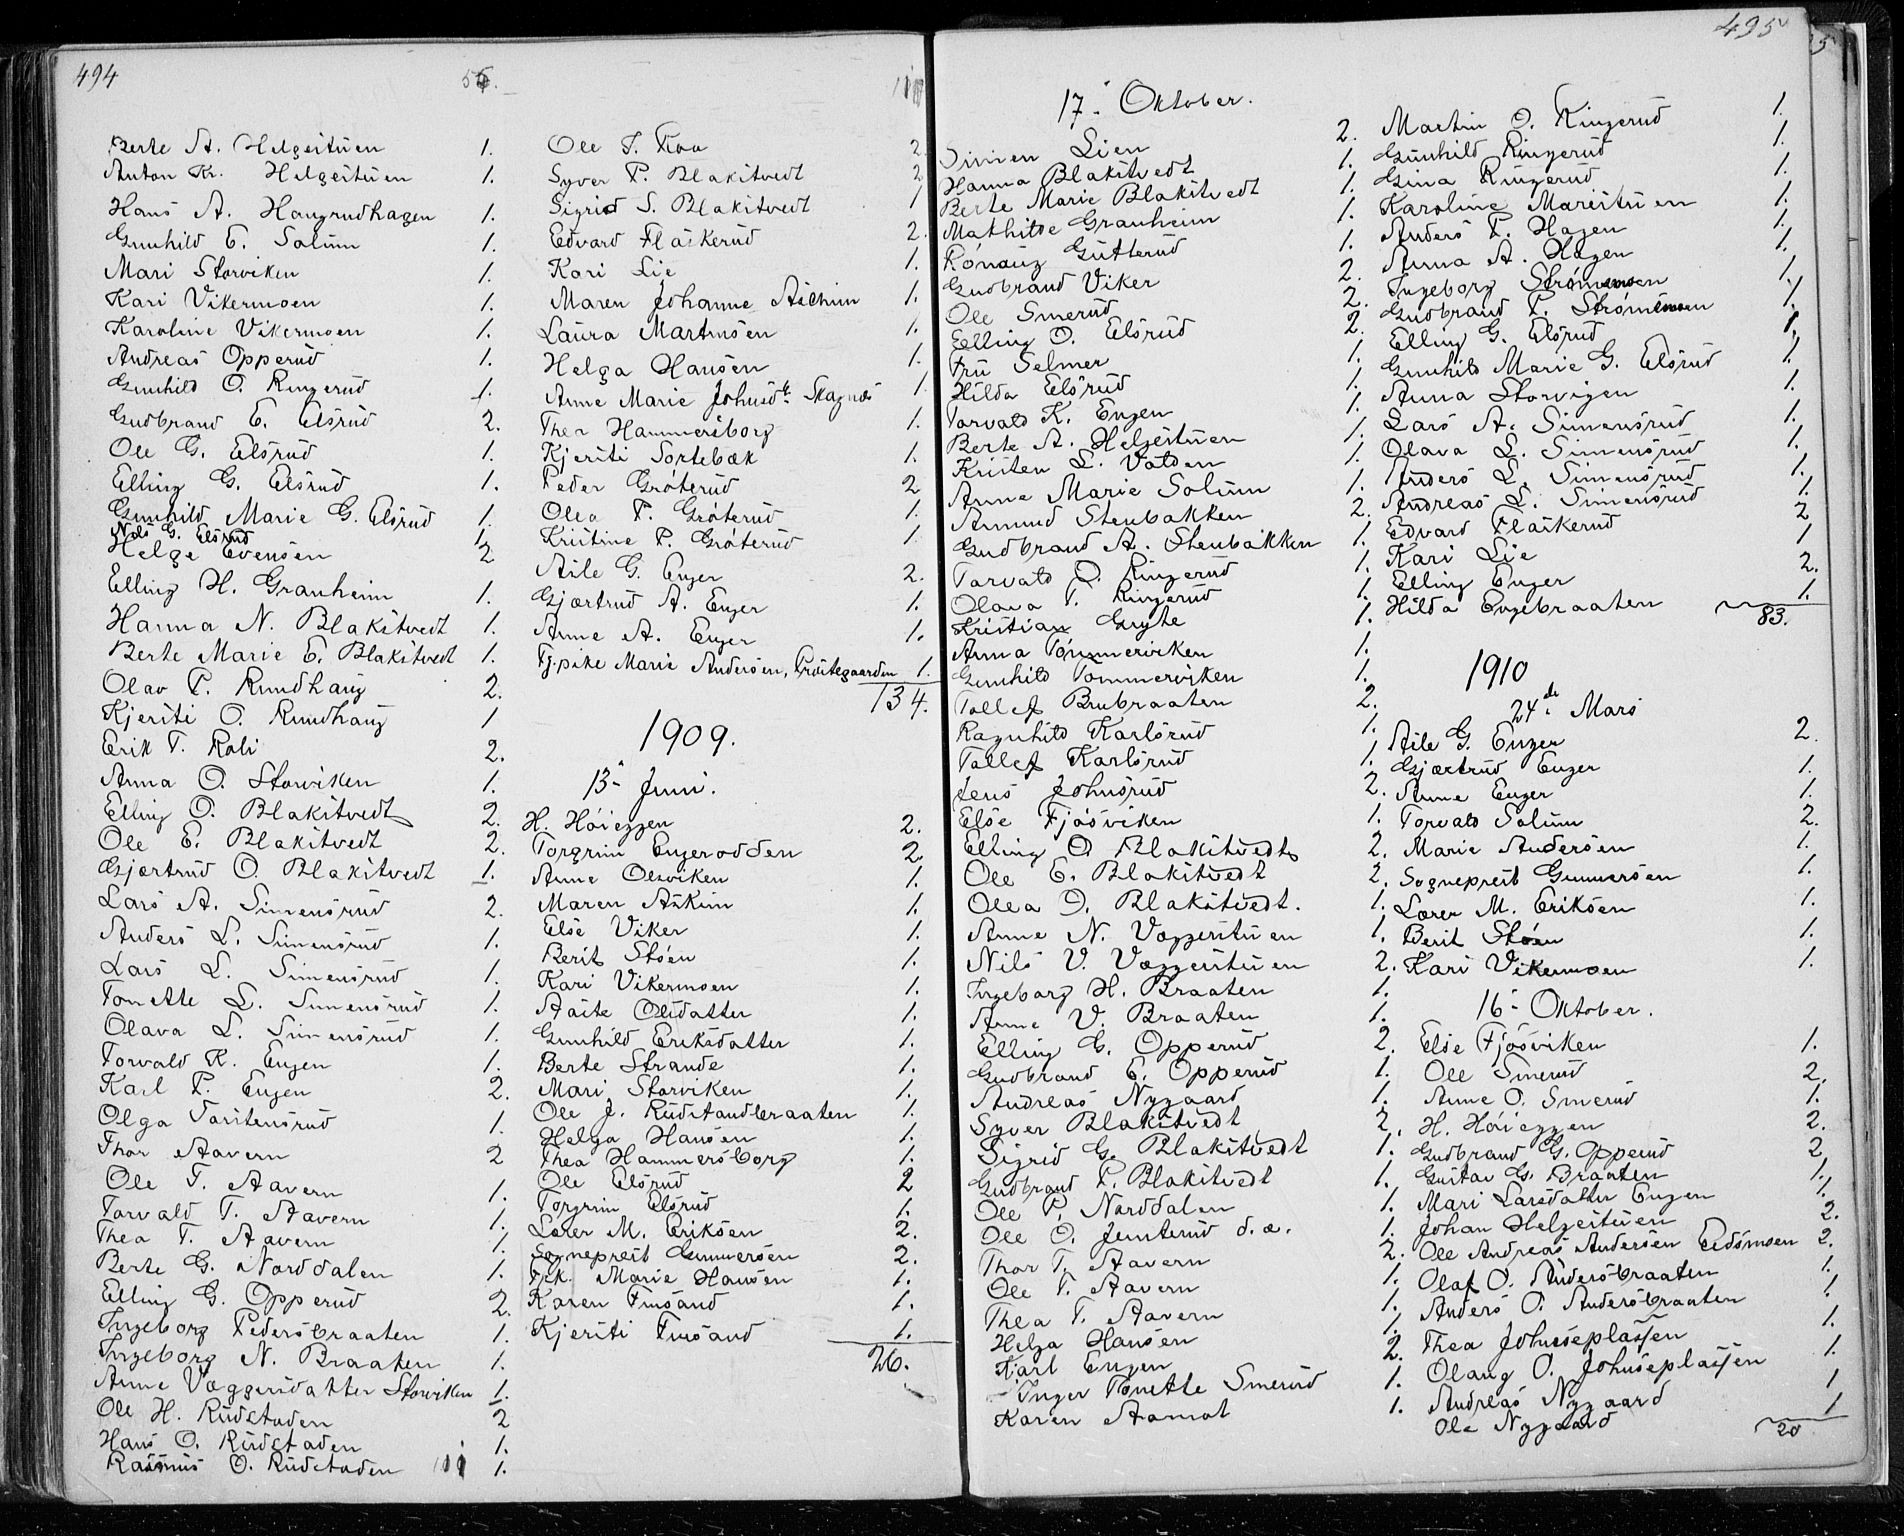 494
56.
Berte A. Helgeituen 1.
Anton Kr. Helgeituen 1.
Hans A. Haugrudhagen 1.
Gunhild E. Solum 1.
Mari Storviken 1.
Kari Vikermoen 1.
Karoline Vikermoen 1.
Andreas Opperud 1.
Gunhild O. Ringerud 1.
Gudbrand E. Elsrud 2.
Ole G. Elsrud 1.
Elling G. Elsrud 1.
Gunhild Marie G. Elsrud 1.
Nils G. Elsrud 1.
Helge Evensen 2
Elling H. Granheim 1.
Hanna N. Blakitvedt 1.
Berte Marie E. Blakitvedt 1.
Olav P. Rundhaug 2.
Kjersti O. Rundhaug 1
Erik T. Roli 2.
Anna O. Storviken 1.
Elling O. Blakitvedt 2.
Ole E. Blakitvedt 2.
Gjærtrud O. Blakitvedt 1.
Lars A. Simensrud 2.
Anders L. Simensrud 1.
Lars L. Simensrud 1.
Tonette L. Simensrud 1.
Olava L. Simensrud 1.
Torvald K. Engen 1.
Karl P. Engen 2.
Olga Torstensrud 1.
Thor Aavern 2
Ole T. Aavern 1.
Torvald T. Aavern 1.
Thea T. Aavern 1.
Berte G. Norddalen 1.
Elling G. Opperud 2.
Ingeborg Pedersbraaten 1.
Ingeborg N. Braaten 1.
Anne Væggersdatter Storviken 1.
Ole H. Rudstaden 2
Hans O. Rudstaden 1.
Rasmus O. Rudstaden 1.
Ole T. Roa 2.
Syver P. Blakitvedt 2
Sigrid S. Blakitvedt 1
Edvard Flaskerud 2.
Kari Lie 1.
Maren Johanne Askim 1.
Laura Martinsen 1.
Helga Hansen 1.
Anne Marie Johnsdt. Skagnæs 1
Thea Hammersborg 1.
Kjersti Sortebæk 1.
Peder Grøterud 2
Olea P. Grøterud 1.
Kristine P. Grøterud 1
Asle G. Enger 2.
Gjærtrud A. Enger 1.
Anne A. Enger 1.
Tj.pike Marie Andersen, Præstegaarden 1.
134.
1909.
13. Juni.
H. Høieggen 2.
Torgrim Engerodden 2.
Anne Olsviken 1.
Maren Askim 1.
Else Viker 1.
Berit Støen 1.
Kari Vikermoen 1.
Aaste Olsdatter 1.
Gunhild Eriksdatter 1.
Berte Strande 1.
Mari Storviken 1.
Ole J. Rudstandbraaten 1.
Helga Hansen 1.
Thea Hammersborg 1.
Ole Elsrud 2
Torgrim Elsrud 1.
Lærer M. Eriksen 2.
Sogneprest Gunnersen 2.
Frk. Marie Hansen 1.
Karen Finsand 1.
Kjersti Finsand 1.
26.
495
17. Oktober.
Simen Lien 2.
Hanna Blakitvedt 1.
Berte Marie Blakitvedt 1.
Mathilde Granheim 1.
Rønaug Gutterud 1.
Gudbrand Viker 2.
Ole Smerud 2.
Elling O. Elsrud 2.
Fru Selmer 1.
Hilda Elsrud 1.
Torvald K. Engen 1.
Berte A. Helgeituen 1.
Kristen L. Valden 1.
Anne Marie Solum 1.
Amund Stenbakken 2.
Gudbrand A. Stenbakken 1.
Torvald O. Ringerud 1.
Olava T. Ringerud 1.
Kristian Gryte 1.
Anna Tømmerviken 1.
Gunhild Tømmerviken 1.
Tollef Brubraaten 2.
Ragnhild Karlsrud 1.
Tollef Karlsrud 1.
Jens Johnsrud 2.
Else Fjøsviken 1.
Elling O. Blakitvedt 2.
Ole E. Blakitvedt 2.
Olea O. Blakitvedt. 1.
Anne N. Væggersituen 1.
Nils V. Væggersituen 2.
Ingeborg H. Braaten 1.
Anne V. Braaten 1.
Elling G. Opperud 2.
Gudbrand E. Opperud 1.
Andreas Nygaard 1.
Syver Blakitvedt 2.
Sigrid G. Blakitvedt 1.
Gudbrand P. Blakitvedt 1.
Ole P. Norddalen 1.
Ole O. Jemterud d.æ. 1.
Thor T. Aavern 2.
Ole T. Aavern 1.
Thea T. Aavern 1.
Helga Hansen 1.
Karl Engen 2.
Inger Tonette Smerud 1.
Karen Aamot 1.
Martin O. Ringerud 1.
Gunhild Ringerud 1.
Gina Ringerud 1.
Karoline Mareituen 1.
Anders P. Hagen 1.
Anna A. Hagen 1.
Ingeborg Strømmen 1.
Gudbrand P. Strømmen 1.
Elling G. Elsrud 1.
Gunhild Marie G. Elsrud 1.
Anna Storvigen 1.
Lars A. Simensrud 1.
Olava L. Simensrud 1.
Anders L. Simensrud 1.
Andreas L. Simensrud 1.
Edvard Flaskerud 2
Kari Lie 1
Elling Enger 2.
Hilda Engebraaten 1.
83.
1910
24de Mars
Asle G. Enger 2.
Gjærtrud Enger 1.
Anne Enger 1.
Torvald Solum 2.
Marie Andersen 1.
Sogneprest Gunnersen 1.
Lærer M. Eriksen 1.
Berit Støen 1.
Kari Vikermoen 1.
16. Oktober.
Else Fjøsviken 1.
Ole Smerud 2.
Anne O. Smerud 1.
H. Høieggen 2.
Gudbrand G. Opperud 2
Gustav G. Braaten 1.
Mari Larsdatter Engen 1.
Johan Helgeituen 2.
Ole Andreas Andersen Eidsmoen 2.
Olaf O. Andersbraaten 1.
Anders O. Andersbraaten 1.
Thea Johnseplassen 1.
Olaug O. Johnseplassen 1.
Andreas Nygaard 1
Ole Nygaard 1
20